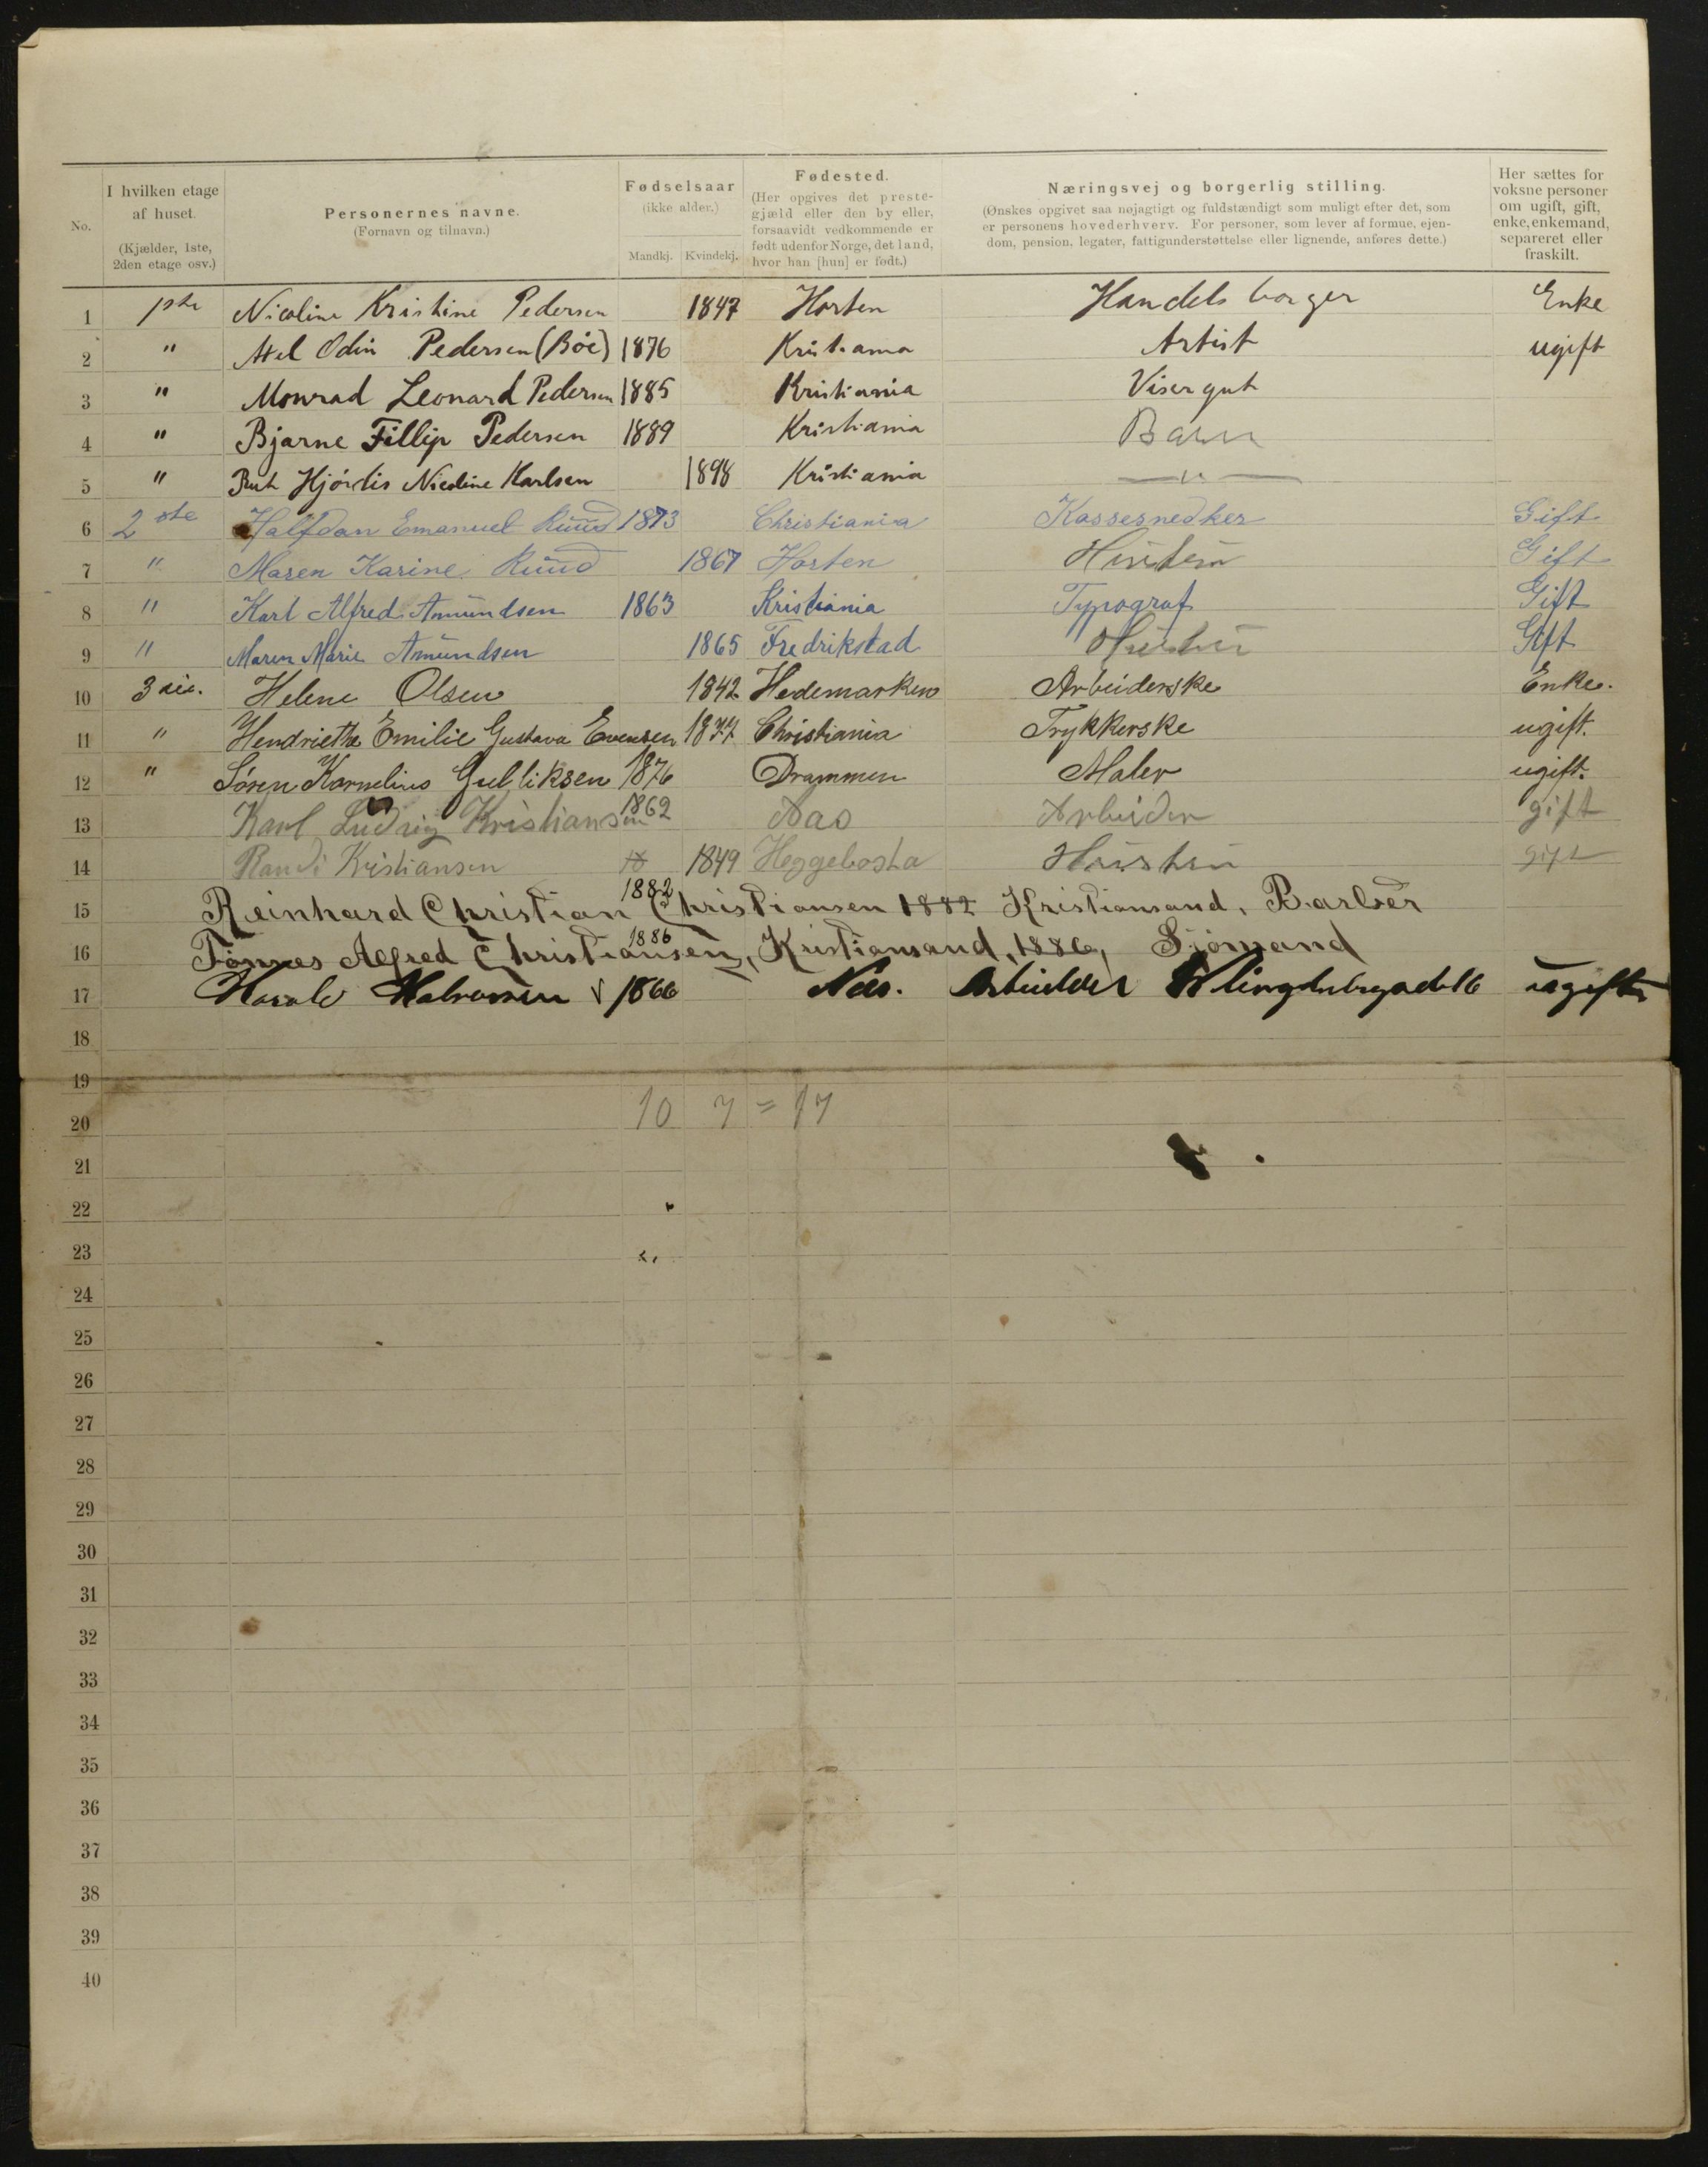 No.
I hvilken etage af huset.
(Kjælder, 1ste, 2den etage osv.)
Personernes navne.
(Fornavn og tilnavn.)
Fødselsaar
(ikke alder.)
Mandkj. Kvindekj.
Fødested.
(Her opgives det prestegjæld eller den by eller, forsaavidt vedkommende er født udenfor Norge, det land, hvor han [hun] er født.)
Næringsvej og borgerlig stilling.
(Ønskes opgivet saa nøjagtigt og fuldstændigt som muligt efter det, som er personens hovederhverv. For personer, som lever af formue, ejendom, pension, legater, fattigunderstøttelse eller lignende, anføres dette.)
Her sættes for voksne personer om ugift, gift, enke, enkemand, separeret eller fraskilt.
1 1ste Nicoline Kristine Pedersen 1847 Horten Handels borger Enke
2 " Axel Odin Pedersen (Böe) 1876 Kristiania Artist ugift
3 " Monrad Leonard Pedersen 1885 Kristiania Visergut
4 " Bjarne Fillip Pedersen 1889 Kristiania Barn
5 " Rut Hjördis Nicoline Karlsen 1898 Kristiania — " —
6 2 ste Halfdan Emanuel Ruud 1873 Christiania Kassesnedker Gift
7 " Maren Karine Ruud 1867 Horten Hustru Gift
8 " Karl Alfred Amundsen 1863 Kristiania Typograf Gift
9 " Maren Marie Amundsen 1865 Fredrikstad Hustru Gift
10 3 die. Helene Olsen 1842 Hedemarken Arbeiderske Enke.
11 " Hendriette Emilie Gustava Evensen 1877 Christiania Trykkerske ugift.
12 " Søren Kornelius Gulliksen 1876 Drammen Maler ugift.
13 Karl Ludvig Kristiansen 1862 Aas Arbeider gift
14 Randi Kristiansen 18 1849 Heggebosta Hustru gift
15 Reinhard Christian Christiansen 1882 1882 Kristiansand, Barber
16 Tönnes Alfred Christiansen, 1886 Kristiansand, 1886, Sjömand
17 Harald Halvorsen 1866 Nes. Arbeider Klingenberggade 16 ugift
18
19
20 10 7 = 17
21
22
23
24
25
26
27
28
29
30
31
32
33
34
35
36
37
38
39
40